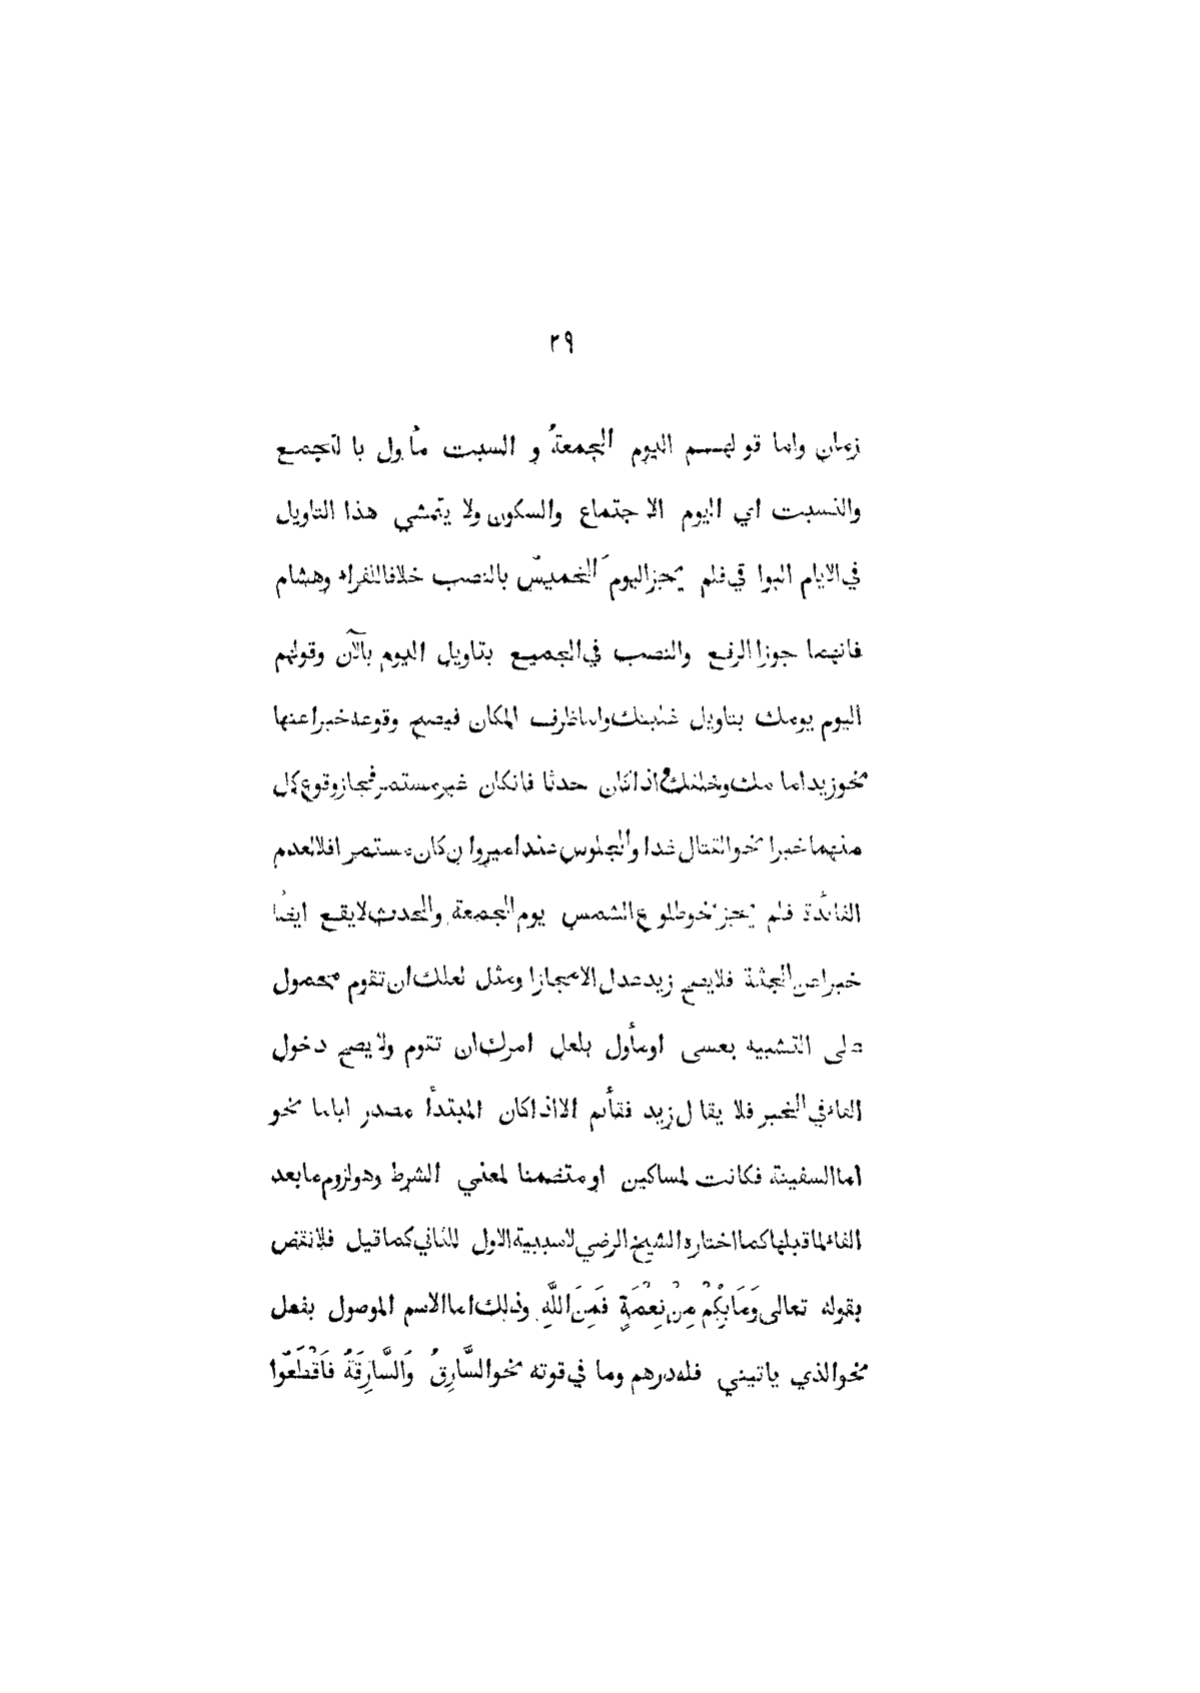 ٢٩
زمان واما قولهم اليوم الجمعةُ و السبت مأول بالتجمع
والتسبت اي اليوم الاجتماع والسكون ولا يتمشي هذا التاويل
في الايام البواقي فلم يجز اليومَ الخميسُ بالنصب خلافا للفراء وهشام
فانهما جوزا الرفع والنصب في الجميع بتاويل اليوم بالآن وقولهم
اليوم يومك بتاويل غلبتك واما ظرف المكان فيصح وقوعه خبرا عنها
نحو زيد امامك وخلفك واذا كان حدثا فانكان غير مستمر فجاز وقوع كل
منهما خبرا نحو القتال غدا والجلوس عند امير وان كان مستمرا فلا لعدم
الفائدة فلم يجز نحو طلوع الشمس يوم الجمعة والحدث لا يقع ايضا
خبرا عن الجثة فلا يصح زيد عدل الا مجازا ومثل لعلك ان تقوم محمول
على التشبيه بعسى او مأول بلعل امرك ان تقوم ولا يصح دخول
الفاء في الخبر فلا يقال زيد فقائم الا اذا كان المبتدأ مصدرا باما نحو
اما السفينة فكانت لمساكين او متضمنا لمعني الشرط وهو لزوم ما بعد
الفاء لما قبلها كما اختاره الشيخ الرضي لا سببية الاول للثاني كما قيل فلا نقض
بقوله تعالى وَمَا بِكُمْ مِنْ نِعْمَةٍ فَمِنَ اللَّهِ وذلك اما الاسم الموصول بفعل
نحو الذي ياتيني فله درهم وما في قوته نحو السَّارِقُ وَالسَّارِقَةُ فَاقْطَعُوا